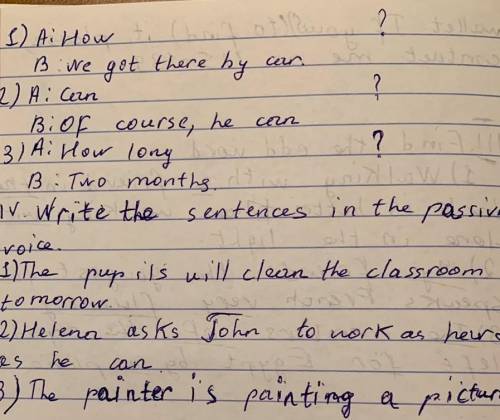 1) A: How ?
B: we got there by car.
2) A: Can ?
B: Of course, he can
3) A: How long ?
B: Two months.
IV. Write the sentences in the passiv
voice.
1) The pupils will clean the classroom
tomorrow.
2) Helena asks John to work as
as he can.
3) The painter is painting a pictur